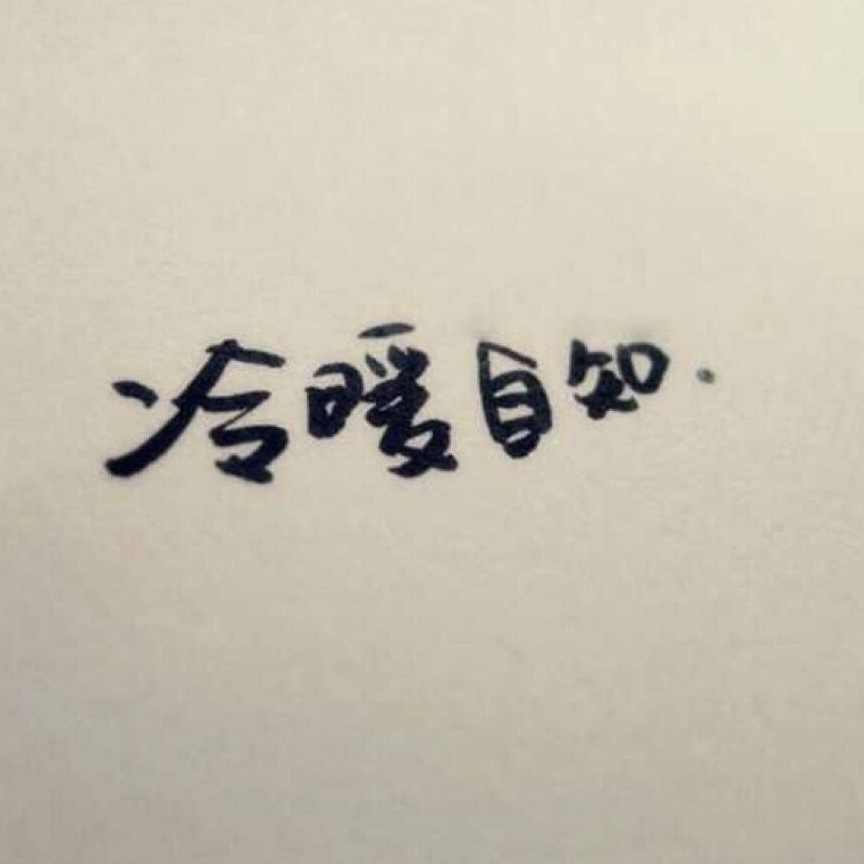 冷暖自知.